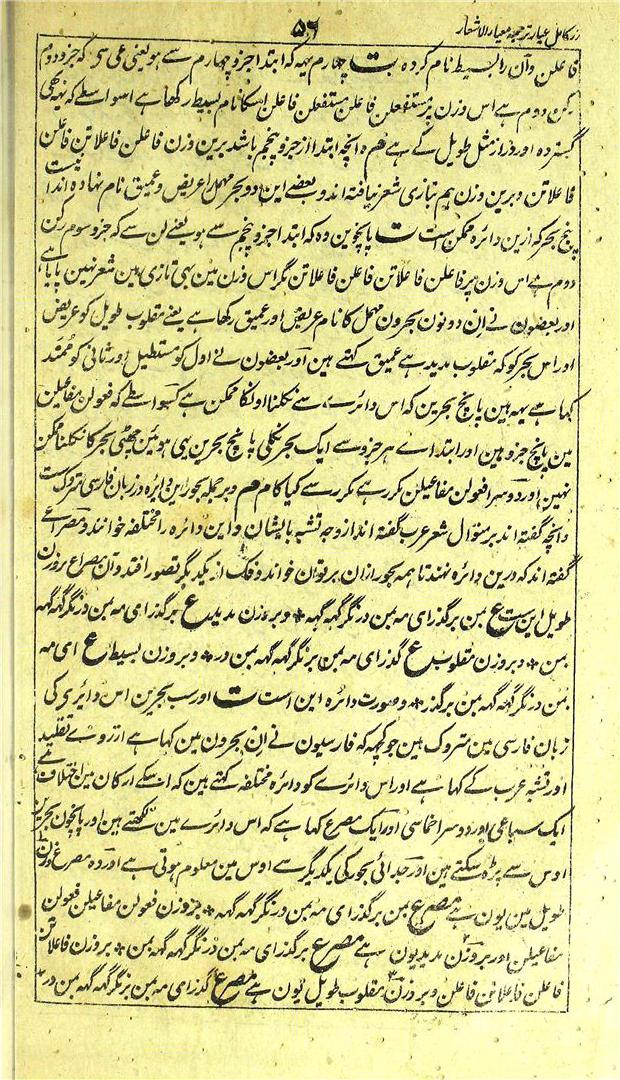 زر کامل عیار ترجمہ معیار الاشعار
۵۶
فاعلن وآن را بسیط نام کرده ت چہارم یہہ کہ ابتدا جزو چہارم سے ہو یعنی عی سی کہ جزو دوم
رکن دوم ہے اس وزن پر مستفعلن فاعلن مستفعلن فاعلن اسکا نام بسیط رکھا ہے اسواسطے کہ یہہ بھی
گسترده اور دراز مثل طویل کے ہے م ه آنچه ابتدا از جزو پنجم باشد برین وزن فاعلن فاعلاتن فاعلن
فاعلاتن وبرین وزن هم بتازی شعر نیافته اند و بعضے این دو بحر مهمل را عریض وعمیق نام نهاده اند اینست
پنج بحر که ازین دائره ممکن است ت پانچوین وہ کہ ابتدا جزو پنجم سے ہو یعنے لن سے کہ جزو سوم رکن
دوم ہے اس وزن پر فاعلن فاعلاتن فاعلن فاعلاتن مگر اس وزن مین بہی تازی مین شعر نہین پایا ہے
اور بعضون نے ان دونون بحرون مہمل کا نام عریض اور عمیق رکھا ہے یعنے مقلوب طویل کو عریض
اور اس بحر کو کہ مقلوب مدید ہے عمیق کہتے ہین اور بعضون نے اول کو مستطیل اور ثانی کو ممتد
کہا ہے یہہ ہین پانچ بحرین کہ اس دائرے سے نکلنا اونکا ممکن ہے کسواسطے کہ فعولن مفاعیلن
مین پانچ جزو ہین اور ابتداے ہر جزو سے ایک بحر نکلی پانچ بحرین ہی ہوئین چھٹی بحر کا نکلنا ممکن
نہین اور دوسرا فعولن مفاعیلن مکرر ہے مکرر سے کیا کام م و جملہ بحور این دائره در زبان فارسی متروکست
وآنچه گفته اند بر منوال شعر عرب گفته اند از وجه تشبه بایشان واین دائره را مختلفه خوانند و مصراعے
گفته اند که درین دائره نهند تا همه بحور ازان بر توان خواند وفک از یکدیگر تصور افتد وآن مصراع بر وزن
طویل این ست ع بمن برگذر ای مه بمن درنگر گهه گهه * و بر وزن مدید ع برگذر ای مه بمن درنگر گهه گهه
بمن * و بر وزن مقلوب ع گذر ای مه بمن برنگر گهه گهه بمن در * و بر وزن بسیط ع ای مه
بمن درنگر گهه گهه بمن برگذر * و صورت دائره این است ت اور سب بحرین اس دائرے کی
زبان فارسی مین متروک ہین جو کچہہ کہ فارسیون نے ان بحرون مین کہا ہے از روے تقلید
اور تشبہ عرب کے کہا ہے اور اس دائرے کو دائرہ مختلفہ کہتے ہین کہ اسکے ارکان مین اختلاف ہے
ایک سباعی اور دوسرا خماسی اور ایک مصرع کہا ہے کہ اس دائرے مین لکھتے ہین اور پانچون بحرین
اوس سے پڑہ سکتے ہین اور جدائی بحور کی یکدیگر سے اوس مین معلوم ہوتی ہے اور وہ مصرع وزن
طویل مین یون ہے مصرع بمن برگذر ای مه بمن درنگر گهه گهه * بر وزن فعولن مفاعیلن فعولن
مفاعیلن اور بر وزن مدید یون ہے مصرع برگذر ای مه بمن درنگر گهه گهه بمن * بر وزن فاعلاتن
فاعلن فاعلاتن فاعلن و بر وزن مقلوب طویل یون ہے مصرع گذر ای مه بمن برنگر گهه گهه بمن در *